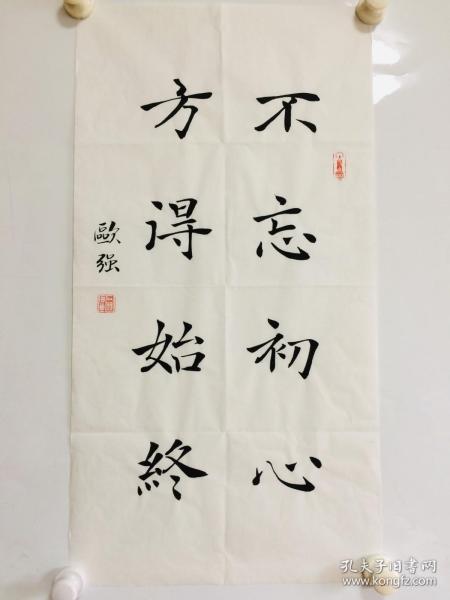 不忘初心
方得始終
歐强
孔夫子旧书网
www.kongfz.com